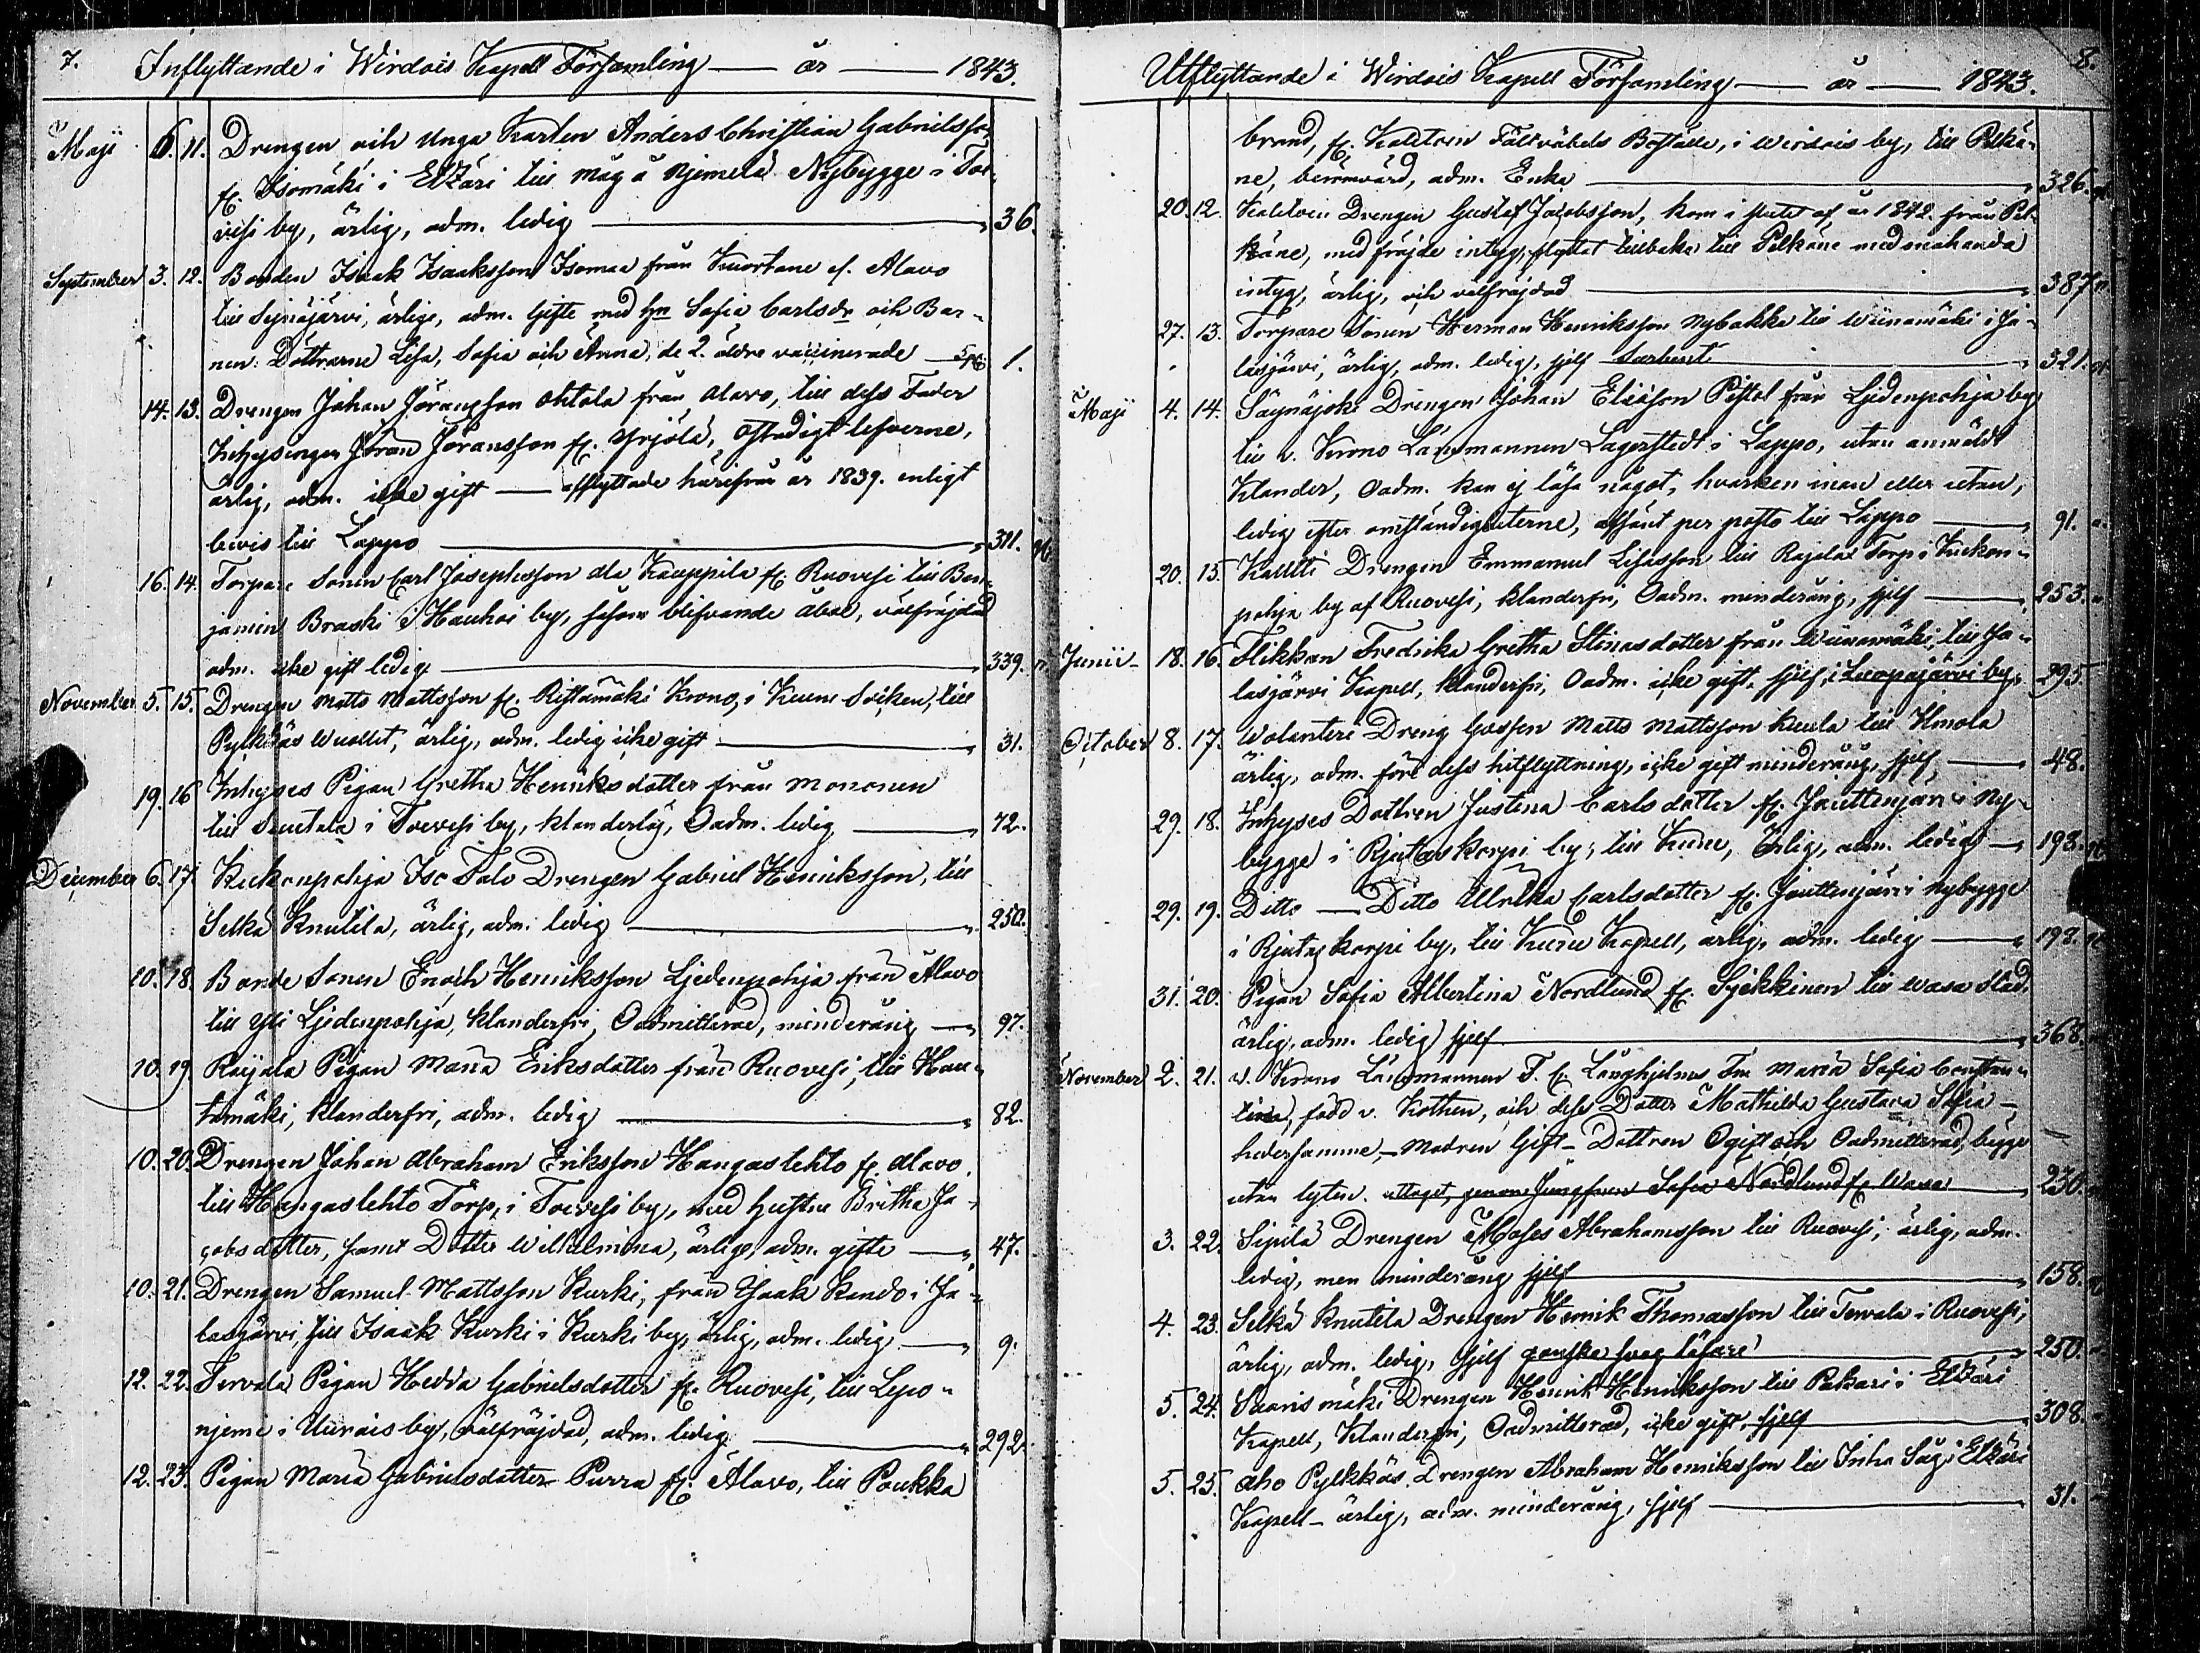 7. Inflyttande i Wirdois Kapell Församling — år — 1843.
Maji 6. 11. Drengen och Unga Karlen Anders Christian Gabrielsson
fr. Isomäki i Etzäri till måg å Njemelä Nybygge i Toi-
vesi by, ärlig, adm. ledig — " 36.
September 3. 12. Bonden Isaak Isaaksson Isomaa från Kuortane af Alavo
till Sejnäjärvi, ärlige, adm. Gifte med hn Sofia Carlsdr och Bar-
nen: Döttrarne Lisa, Sofia och Anna, de 2. äldre vaccinerade — 1.
14. 13. Drengen Johan Jöransson Ohtola från Alavo, till dess Fader
Inhysingen Jöran Jöransson fr. Yrjölä,
ärlig, adm. icke gift — afflyttade härifrån år 1839. enligt
bevis till Lappo — " 311.
16. 14. Torpare Sonen Carl Josephsson ala Kauppila fr. Ruovesi till Ben-
jamin Braski i Hauhoi by, såsom blifvande åboe, välfräjdad
adm. icke gift ledig — 339.
November 5. 15. Drengen Matts Mattsson fr. Ristamäki Krono, i Kuru Socken, till
Pylkkäs Wuollet, ärlig, adm. ledig icke gift — " 31.
19. 16 Inhyses Pigan Gretha Henriksdotter från Mononen
till i Toivesi by, klanderlig, Oadm. ledig — " 72.
December 6. 17. Kuckonpohja Iso Talo Drengen Gabriel Henriksson, till
Selkä Knutila, ärlig, adm. ledig — " 250.
10. 18. Bonde Sonen Enoch Henriksson Ljedenpohja från Alavo
till Yli Ljedenpohja, klanderfri, Oadmitterad, minderårig — " 97.
10. 19. Rajala Pigan Maria Eriksdotter från Ruovesi, till Hau-
tamäki, klanderfri, adm. ledig — " 82.
10. 20. Drengen Johan Abraham Eriksson Hangaslehto fr. Alavo,
till Hangaslehto Torp, i Toivesi by, med hustru Britha Ja-
cobsdotter, samt Dotter Wilhelmina, ärlige, adm. gifte — " 47.
10. 21. Drengen Samuel Mattsson Kurki, från Isaak Rando i Ja-
lasjärvi, till Isaak Kurki i Kurki by, ärlig, adm. ledig — " 9.
12. 22. Tervala Pigan Hedda Gabrielsdotter fr. Ruovesi, till Lepo-
njemi i Uurais by, välfräjdad, adm. ledig — " 292.
12. 23. Pigan Maria Gabrielsdotter Purra fr. Alavo, till Poukka
Utflyttande i Wirdois Kapell Församling — år — 1843. 8.
brand, fr. Kalitoin Fältväbels Boställe, i Wirdois by, till Pelkä-
ne, berömvärd, adm. Enka — " 326.
20. 12. Kalitoin Drengen Gustaf Jacobsson, kom i slutet af år 1842 från Pel-
käne, med fräjde intyg, flyttat tillbaka till Pelkäne med enahanda
intyg, ärlig, och välfräjdad — " 387
27. 13. Torpare Sonen Herman Henriksson Nybakka till Wiinamäki i Ja-
lasjärvi, ärlig, adm. ledig, sjelf — " 321.
Maji 4. 14. Säynäjoki Drengen Johan Eliasson Pistol från Ljedenpohja by
till v. Krono Länsmannen Lagerstedt i Lappo, utan anmäldt
klander, Oadm. kan ej läsa något, hvarken inan eller utan,
ledig efter omständigheterne, afsänt per posto till Lappo — " 91.
20. 15. Drengen Emmanuel Lisasson till Rajalas Torp i Kuckon-
pohja by af Ruovesi, klanderfri, Oadm. minderårig, sjelf — " 253.
Junii 18. 16. Flikkan Fredrika Gretha Stinasdotter från Wiinamäki, till Ja-
lasjärvi Kapell, klanderfri, Oadm. icke gift. sjelf, i Luopajärvi by " 295
October 8. 17. Wolanteri Dreng Gossen Matts Mattsson Kuula till Ilmola
ärlig, adm. före dess hitflyttning, icke gift minderårig, sjelf — " 48.
29. 18. Inhyses Dottren Justina Carlsdotter fr. Jäuttenjärvi Ny-
bygge i Rjutaskorpi by, till Kuru, Ärlig, adm. ledig — " 198.
29. 19. Ditto — Ditto Ulrika Carlsdotter fr. Jäuttenjärvi Nybygge
i Rjutaskorpi by, till Kuru Kapell, ärlig, adm. ledig — " 198.
31. 20. Pigan Sofia Albertina Nordlund fr. Syckkinen till Wasa Stad.
ärlig, adm. ledig sjelf — " 368.
November 2. 21. v. Krono Länsmannen F. E. Långhjelms Fru Maria Sofia Constan-
tina, född v. Kothen, och dess Dotter Mathilda Gustava Sofia —
hedersamme, — Modren Gift — Dottren Ogift och Oadmitterad, bägge
utan lyten. uttaget, genom Jungfrun Sofia Nordlund fr. Wasa — " 230.
3. 22. Sipilä Drengen Moses Abrahamsson till Ruovesi, ärlig, adm.
ledig, men minderårig sjelf — " 158.
4. 23. Selkä Knutila Drengen Henrik Thomasson till Tervala i Ruovesi,
ärlig, adm. ledig, sjelf ganska svag läsare — " 250.
5. 24. Saarismäki Drengen Henrik Henriksson till Pakari i Etzäri
Kapell, klanderfri, Oadmitterad, icke gift, sjelf — " 308.
5. 25. Aho Pylkkäs Drengen Abraham Henriksson till Inha Såg i Etzäri
Kapell — ärlig, adm. minderårig, sjelf — " 31.